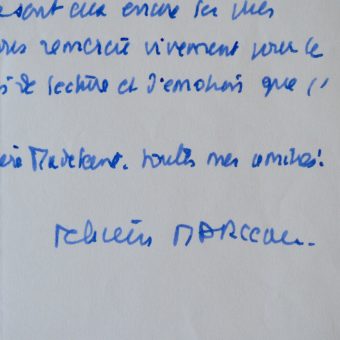 sont eux encore les plus
vous remercie vivement pour le
s de lecture et d'émotions que j'
Madeleine. toutes mes amitiés!
Félicien MARCEAU.